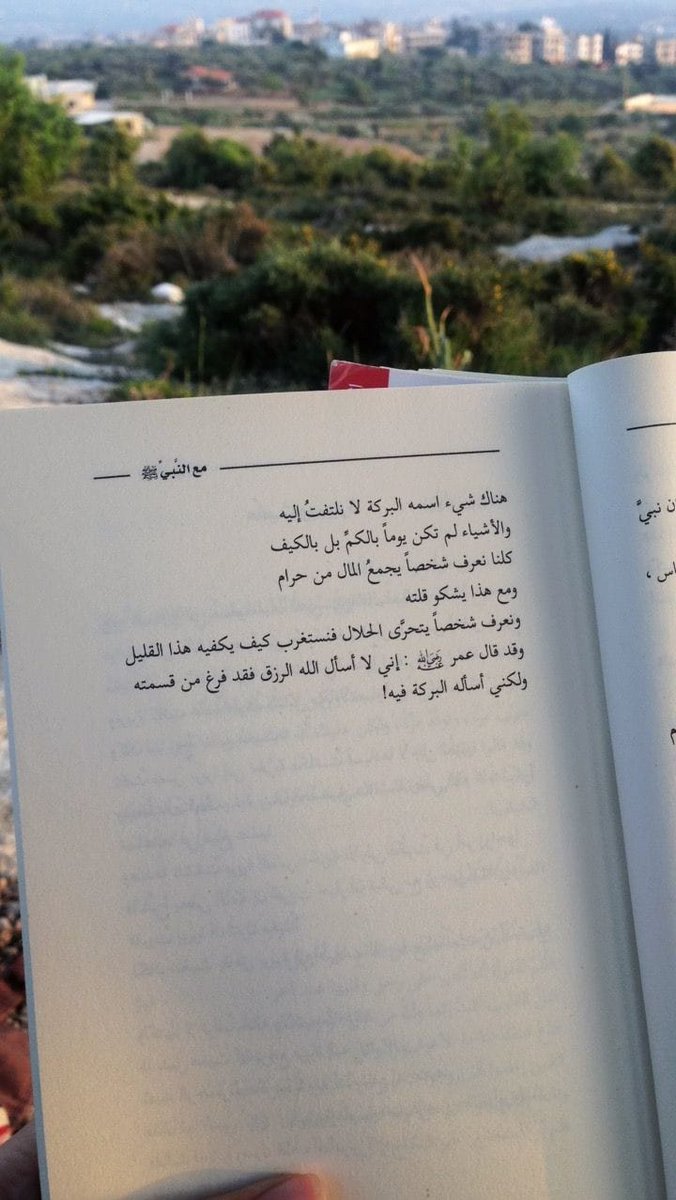 مع النَّبيِّ ﷺ
هناك شيء اسمه البركة لا نلتفتُ إليه
والأشياء لم تكن يوماً بالكمِّ بل بالكيف
كلنا نعرف شخصاً يجمعُ المال من حرام
ومع هذا يشكو قلته
ونعرف شخصاً يتحرَّى الحلال فنستغرب كيف يكفيه هذا القليل
وقد قال عمر رضي الله عنه : إني لا أسأل الله الرزق فقد فرغ من قسمته
ولكني أسأله البركة فيه!
ن نبيَّ
اس ،
م